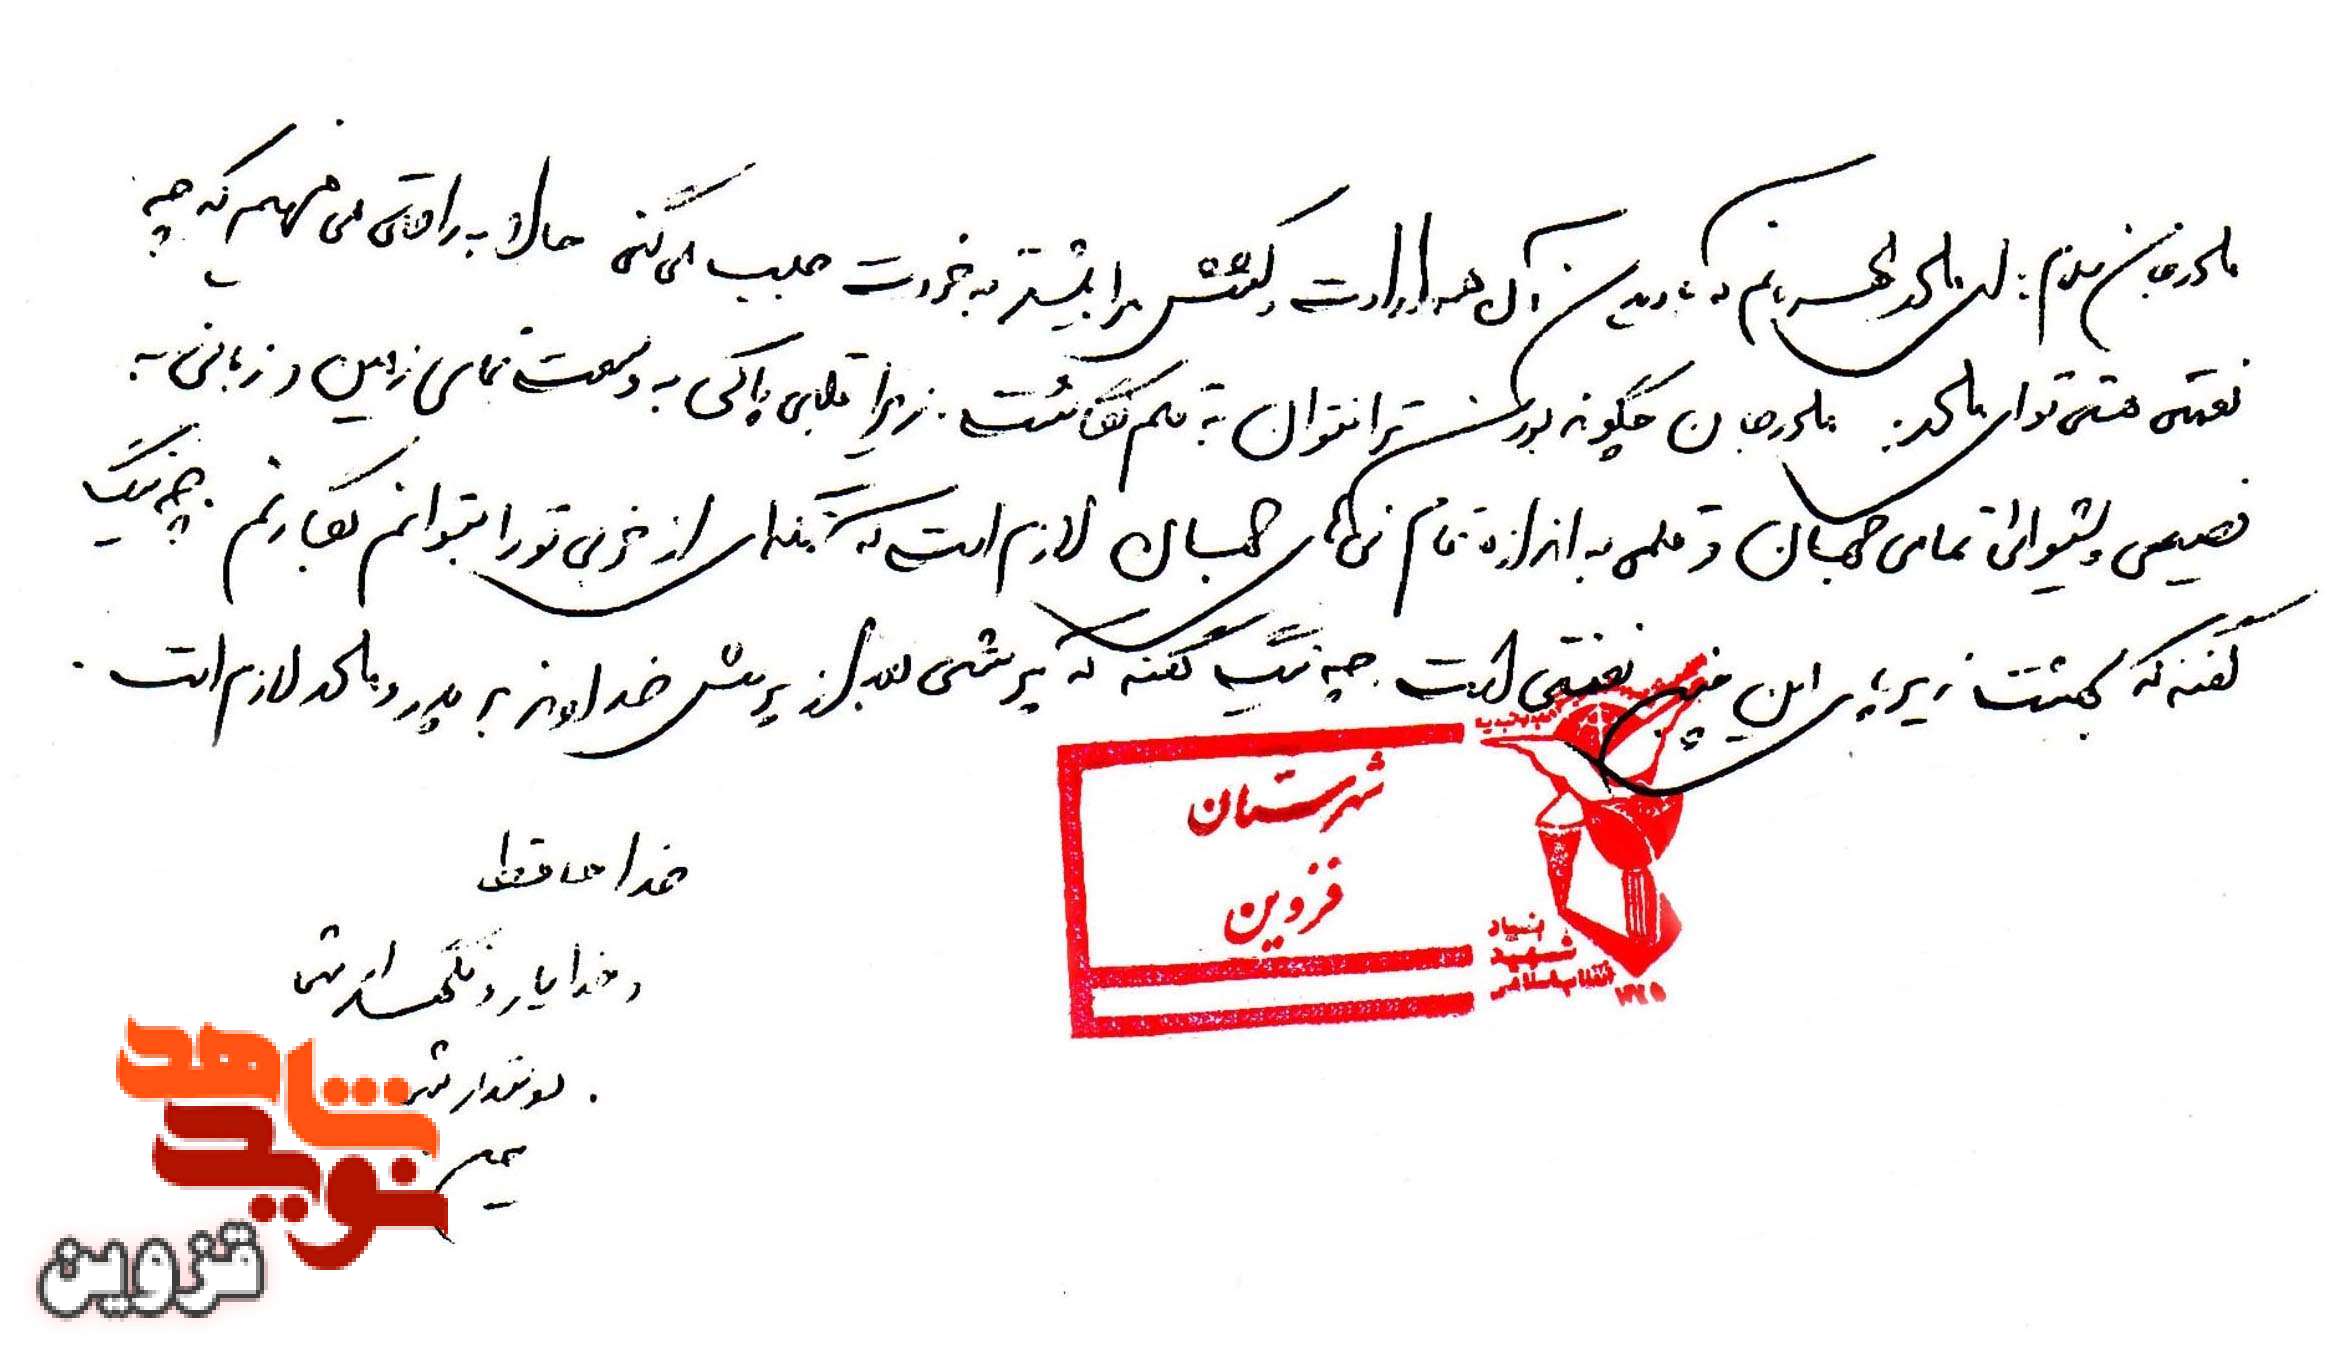 مادرجان سلام: ای مادر مهربانم که با دیدن آن همه ارادت و کشش مرا بیشتر به خودت جلب می کنی حالا به راحتی می فهمم که چه
نعمتی هستی تو ای مادر. مادرجان چگونه بودن ترا نتوان به قلم نگاشت. زیرا قلبی پاکی به وسعت تمامی زمین و زبانی به
فصیحی و شیوائی تمامی جهان و قلمی به اندازه تمام نی های جهان لازم است که گوشه ای از خوبی تو را بتوانم بنگارم. چه نیک
گفته که بهشت زیر پای این چنین نعمتی است. چه نیک گفته که پرستشی بعد از پرستش خداوند بر پدر و مادر لازم است.
خدا حافظ
و خدا یار و نگهدارتان
دوستدارتان
شهرستان
قزوین
بنیاد
شهید
انقلاب اسلامی
شاهد
نوید
قزوین